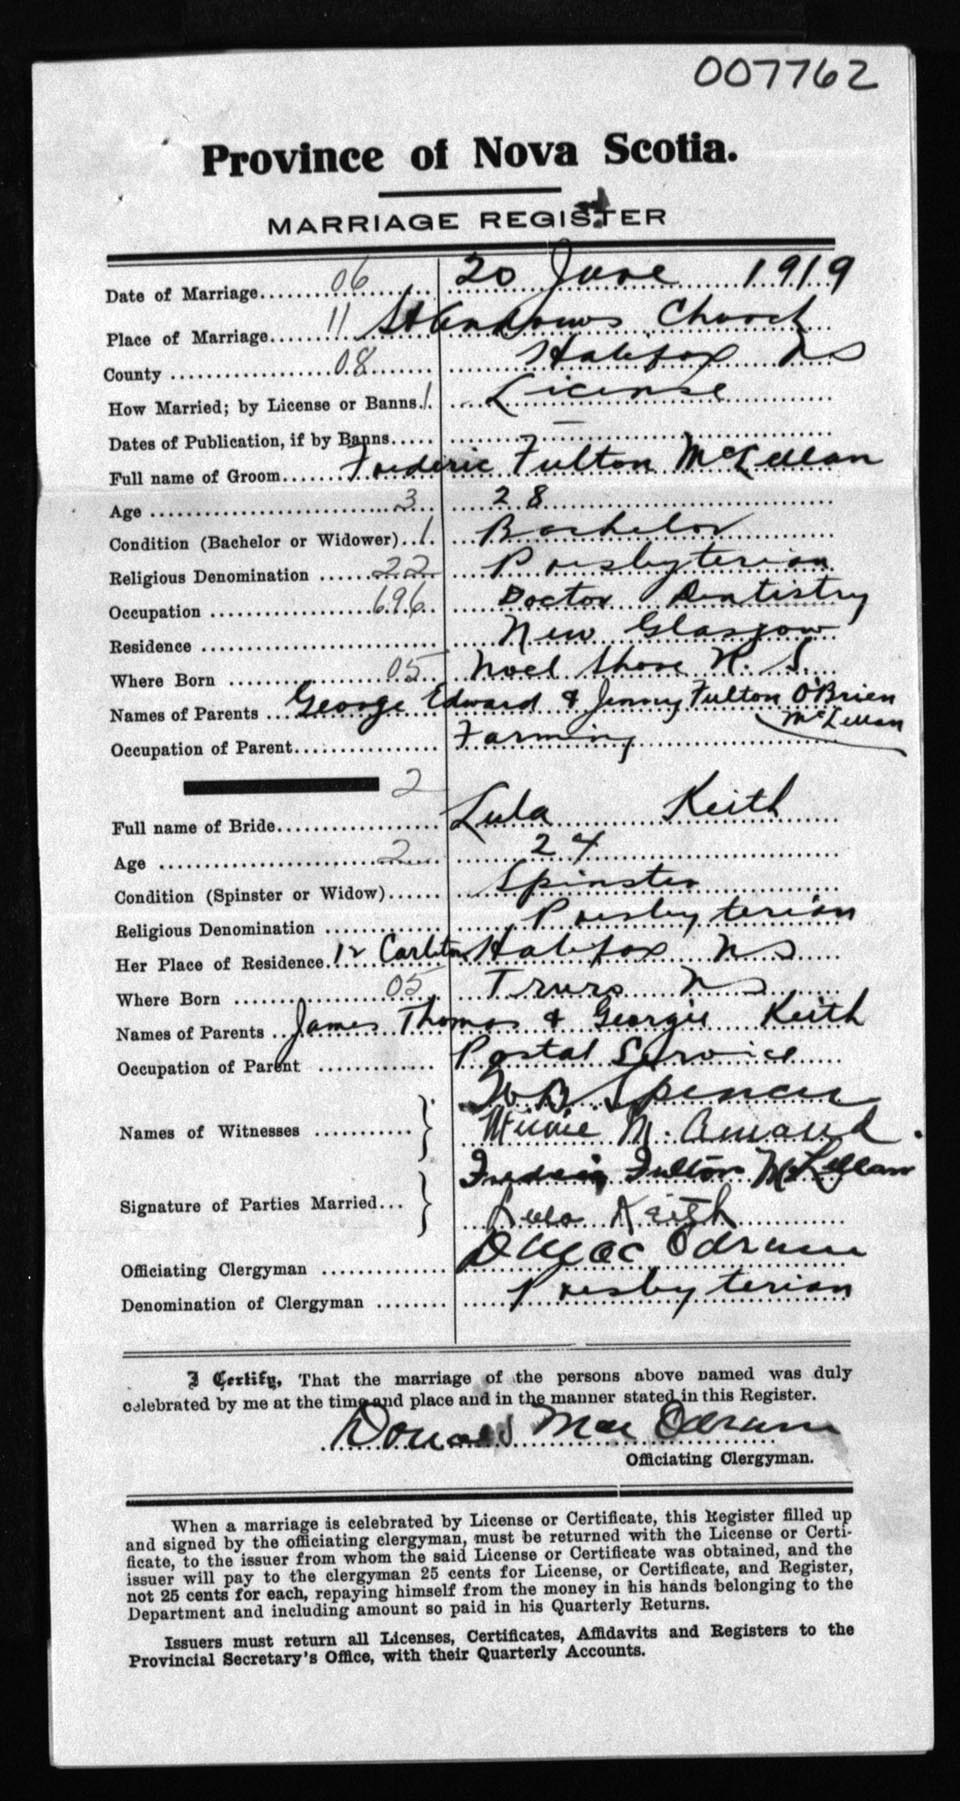 007762
Province of Nova Scotia.
MARRIAGE REGISTER
Date of Marriage........06........ 20 June 1919
Place of Marriage........11 St Andrews Church
County ........08........ Halifax NS
How Married; by License or Banns.1. License
Dates of Publication, if by Banns..... —
Full name of Groom....... Frederic Fulton McLellan
Age ........3... 28
Condition (Bachelor or Widower)..1. Bachelor
Religious Denomination ......22.. Presbyterian
Occupation ........696.. Doctor Dentistry
Residence ........ New Glasgow
Where Born ........05.. Noel Shore N. S.
Names of Parents ... George Edward & Jenny Fulton O'Brien
McLellan
Occupation of Parent............... Farming
2
Full name of Bride.................. Lula Keith
Age ........2... 24
Condition (Spinster or Widow)...... Spinster
Religious Denomination ............ Presbyterian
Her Place of Residence. 12 Carleton Halifax NS
Where Born ........05.. Truro NS
Names of Parents .. James Thomas & Georgie Keith
Occupation of Parent ............ Postal Service
W B Spencer
Names of Witnesses ............ Minnie M.
Frederic Fulton McLellan
Signature of Parties Married...
Lula Keith
Officiating Clergyman ............ D MacOdrum
Denomination of Clergyman ........ Presbyterian
I Certify, That the marriage of the persons above named was duly
celebrated by me at the time and place and in the manner stated in this Register.
Donald MacOdrum
Officiating Clergyman.
When a marriage is celebrated by License or Certificate, this Register filled up
and signed by the officiating clergyman, must be returned with the License or Certi-
ficate, to the issuer from whom the said License or Certificate was obtained, and the
issuer will pay to the clergyman 25 cents for License, or Certificate, and Register,
not 25 cents for each, repaying himself from the money in his hands belonging to the
Department and including amount so paid in his Quarterly Returns.
Issuers must return all Licenses, Certificates, Affidavits and Registers to the
Provincial Secretary's Office, with their Quarterly Accounts.